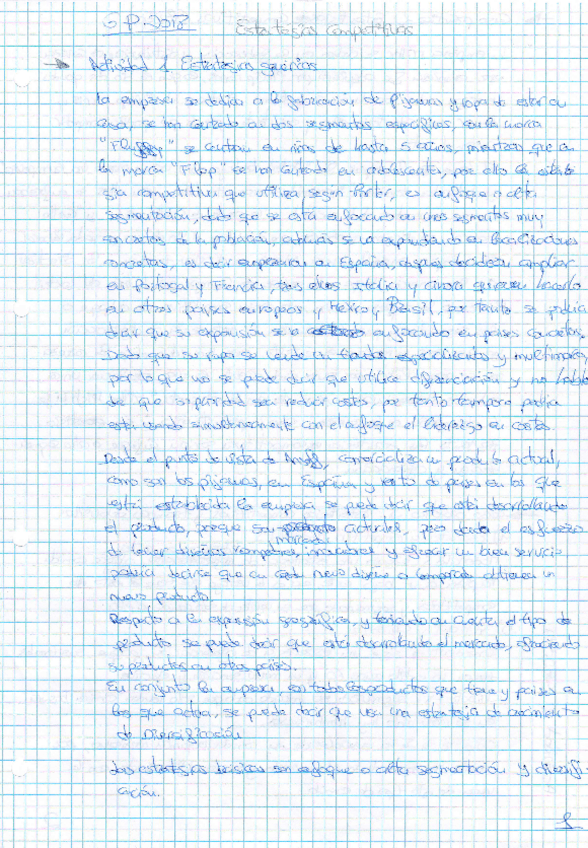 Estrategias Competitivas
Actividad 1 Estrategias genéricas
la empresa se dedica a la fabricación de Pijamas y ropa de estar en
casa, se han centrado en dos segmentos específicos, con la marca
se centran en niños de hasta 5 años, mientras que en
la marca "Flop" se han centrado en adolescentes, por ello la estrate
gia competitiva que utiliza, según Porter, es enfoque o alta
segmentación, dado que se está enfocando en unos segmentos muy
concretos de la población, además se va expandiendo en localizaciones
concretas, es decir empezaron en España, después deciden ampliar
en Portugal y Francia, tras ellos Italia y ahora quieren hacerlo
en otros países europeos y Mexico y Brasil, por tanto se podría
decir que su expansión será enfocando en países concretos.
Dado que su ropa se vende en tiendas especializadas y multimarca,
por lo que no se puede decir que utilice diferenciación y no habla
de que su prioridad sea reducir costes, por tanto tampoco podría
estar usando simultaneamente con el enfoque el liderazgo en costes.
Desde el punto de vista de comercializa un producto actual,
como son los pijamas, en España y resto de países en los que
está establecida la empresa se puede decir que está desarrollando
el producto, porque son mercados actuales, pero dado el esfuerzo
de sacar diseños rompedores, y ofrecer un buen servicio
podría decirse que en cada nuevo diseño o temporada obtienen un
nuevo producto.
Respecto a la expansión geográfica, y teniendo en cuenta el tipo de
producto se puede decir que está desarrollando el mercado, ofreciendo
su productos en otros países.
En conjunto la empresa, con todos los productos que tiene y países en
los que actúa, se puede decir que usa una estrategia de crecimiento
de Diversificación
Las estrategias básicas son enfoque o alta segmentación y diversifi
cación.